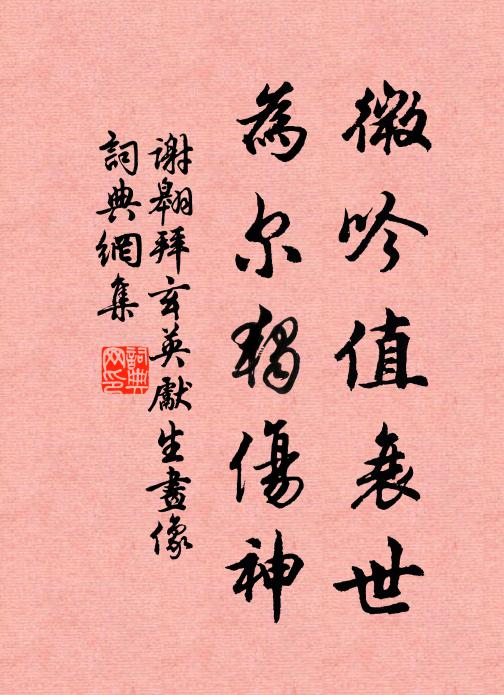 微吟值衰世
為尔獨傷神
謝翱拜玄英獻生畫像
詞典網集
詞典網印